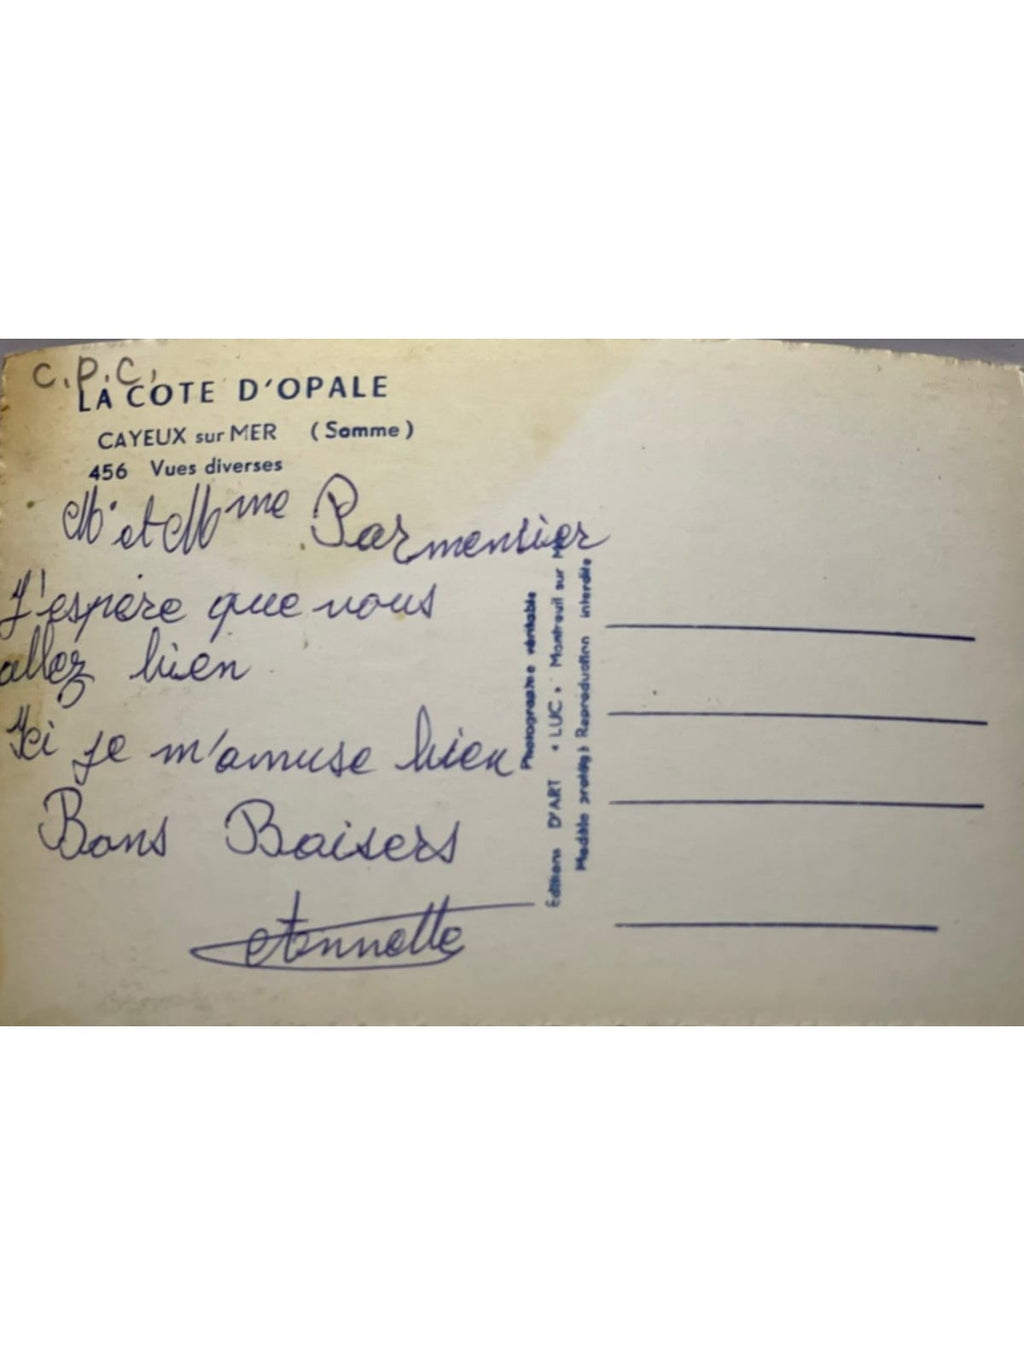 C.P.C.
LA COTE D'OPALE
CAYEUX sur MER (Somme)
456 Vues diverses
Mr et Mme Parmentier
J'espère que vous
allez bien
Ici je m'amuse bien
Bons Baisers
Annette
Photographie véritable
Editions D'ART « LUC » Montreuil sur M
Modèle protégé Reproduction interdite